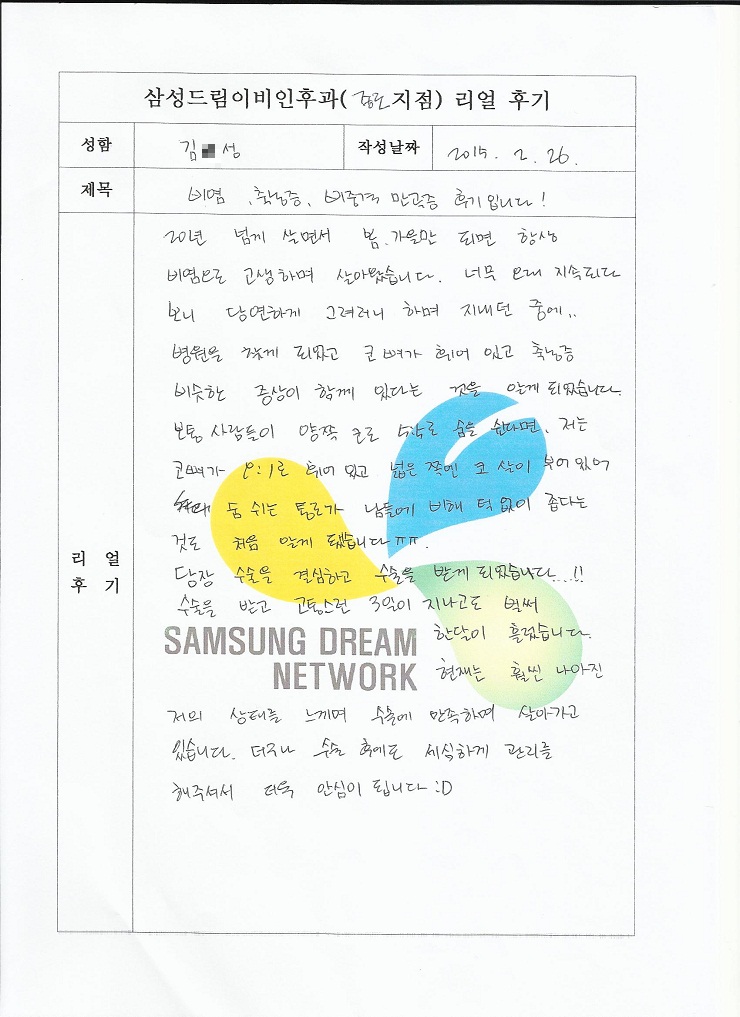 삼성드림이비인후과( 지점) 리얼 후기
성함 김 성 작성날짜 2015. 2. 26.
제목 비염, 축농증, 비중격 만곡증 후기입니다!
20년 넘게 살면서 봄, 가을만 되면 항상
비염으로 고생하며 살아왔습니다. 너무 오래 지속되다
보니 당연하게 그려러니 하며 지내던 중에..
병원을 찾게 되었고 코 뼈가 휘어 있고 축농증
비슷한 증상이 함께 있다는 것을 알게 되었습니다.
보통 사람들이 양쪽 코로 5:5로 숨을 쉰다면, 저는
코뼈가 9:1로 휘어 있고 넓은 쪽엔 코 살이 부어 있어
숨 쉬는 통로가 남들에 비해 턱 없이 좁다는
것도 처음 알게 됐습니다 ㅠㅠ.
당장 수술을 결심하고 수술을 받게 되었습니다...!!
수술을 받고 고통스런 3일이 지나고도 벌써
한달이 흘렀습니다.
현재는 훨씬 나아진
저의 상태를 느끼며 수술에 만족하며 살아가고
있습니다. 더구나 수술 후에도 세심하게 관리를
해주셔서 더욱 안심이 됩니다 :D
리얼
후기
SAMSUNG DREAM
NETWORK